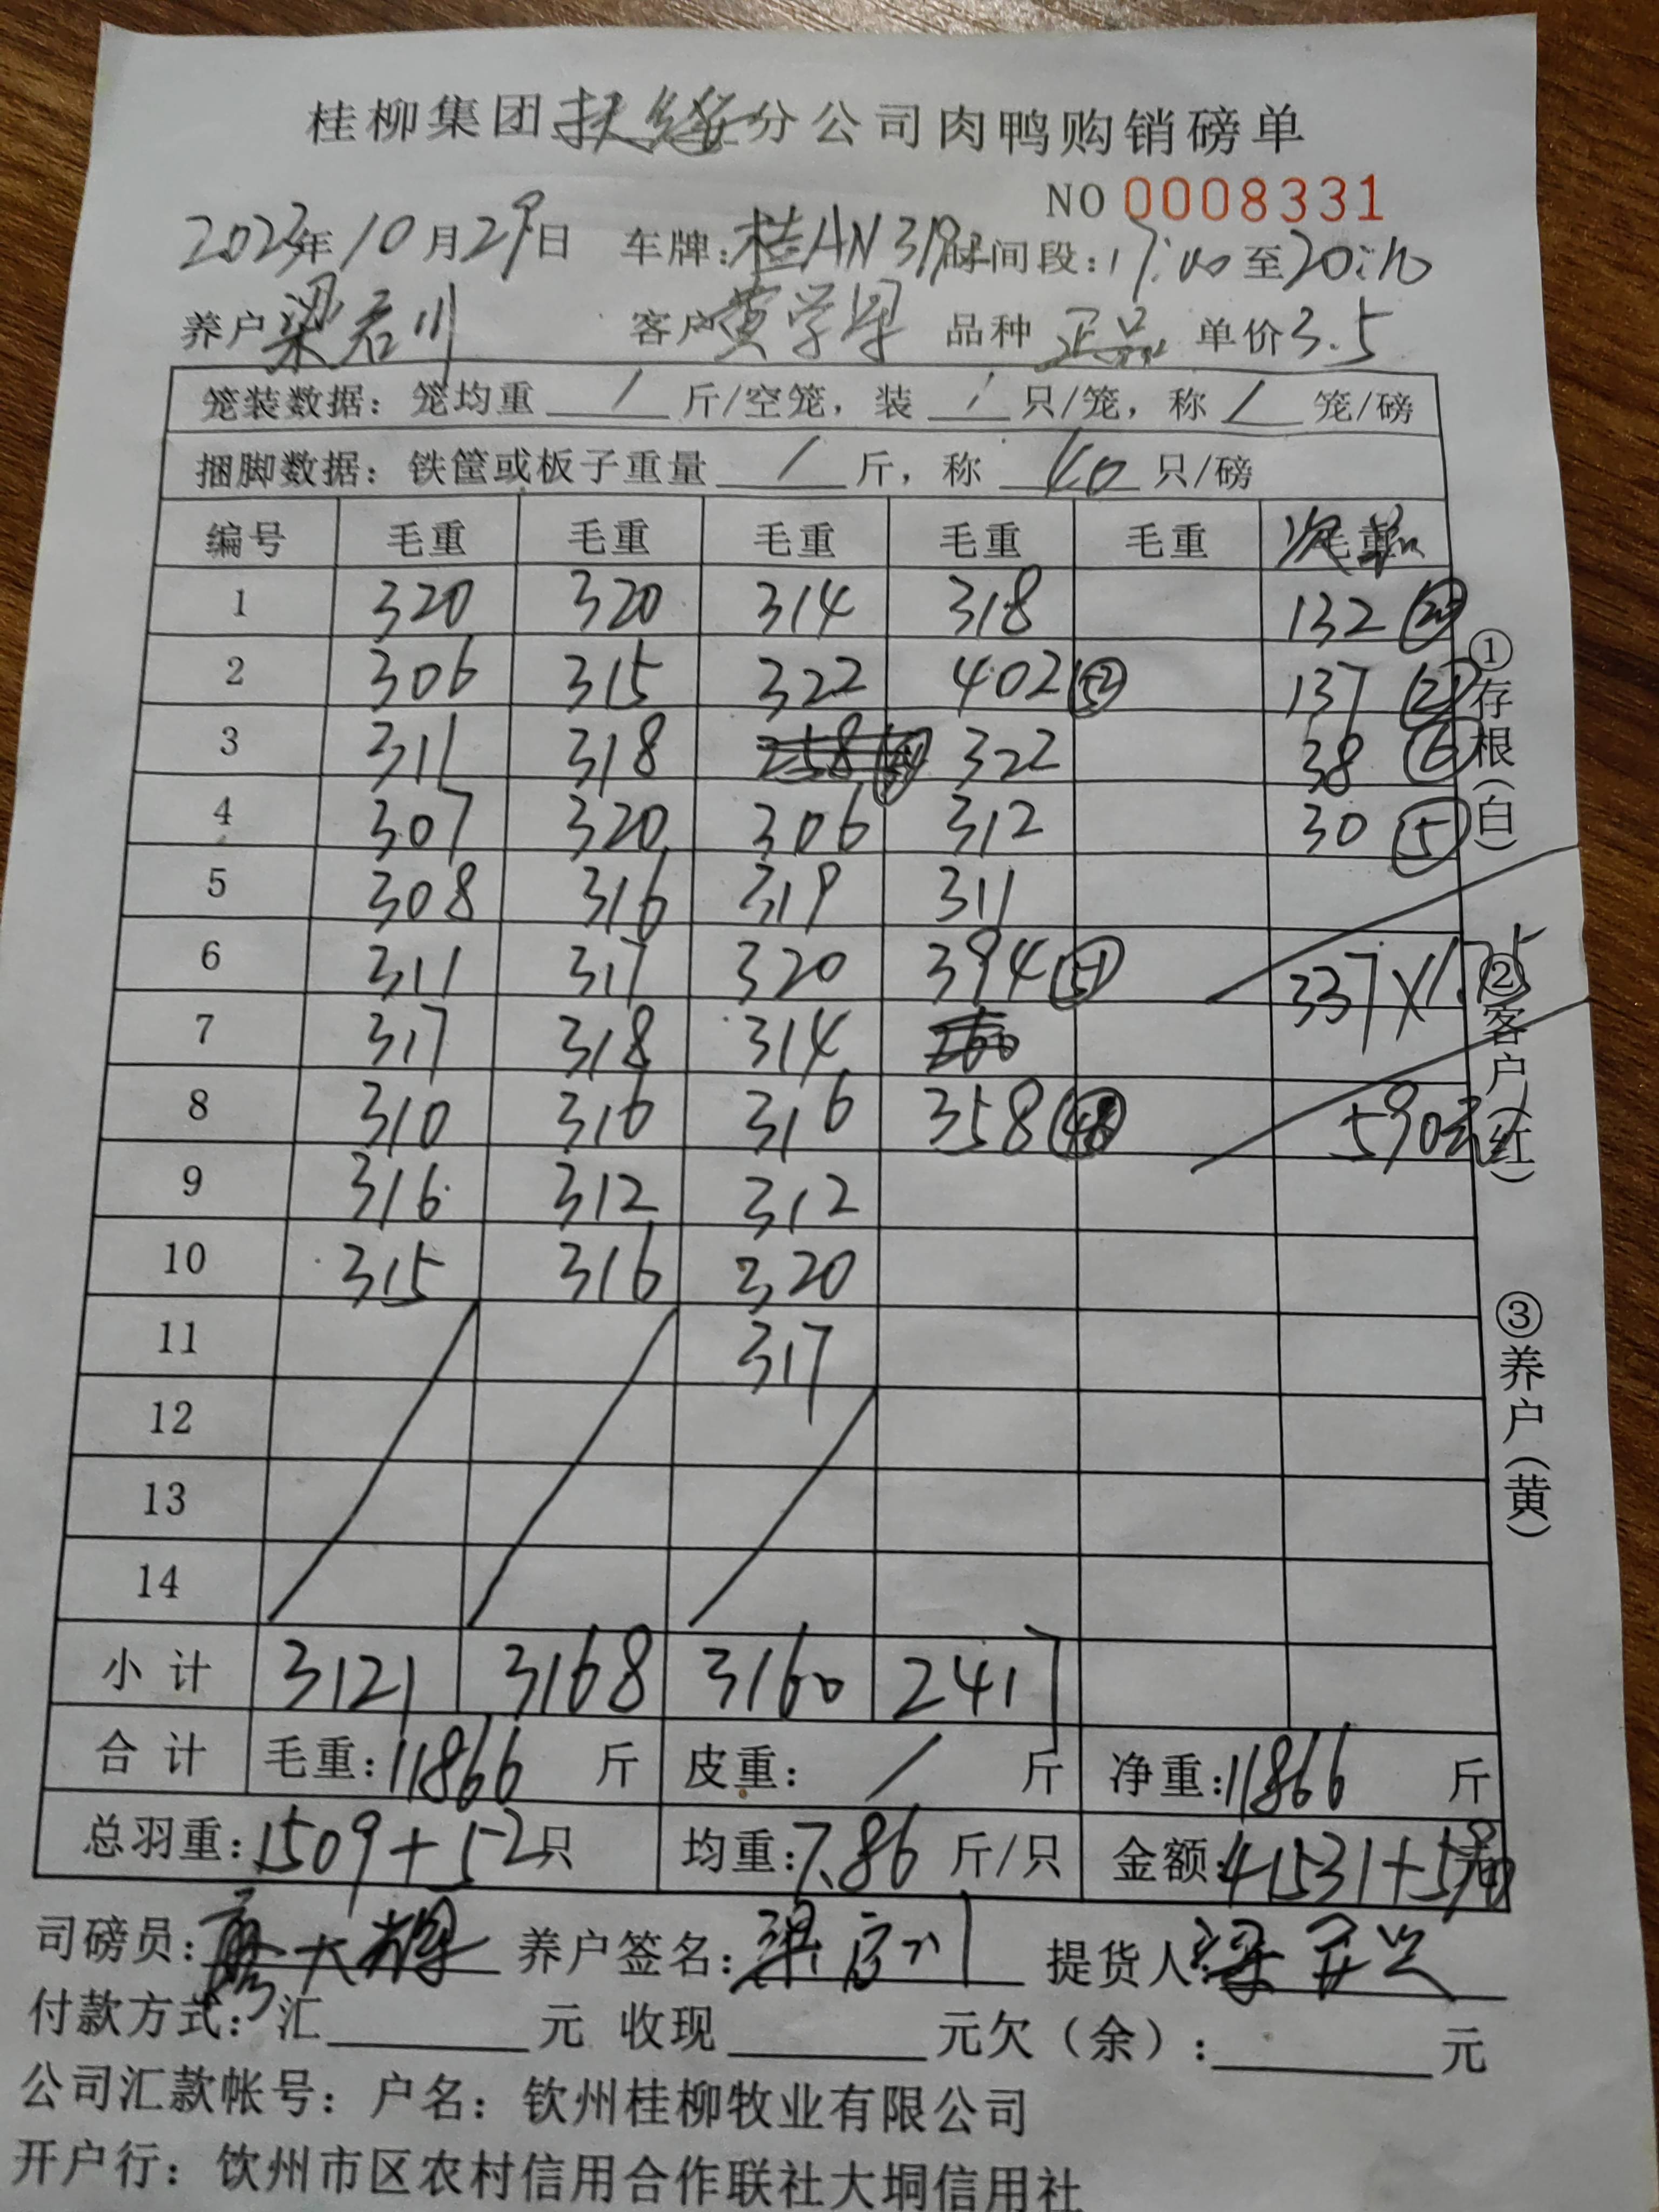 桂柳集团扶绥分公司肉鸭购销磅单
NO 0008331
2023年10月29日 车牌:桂AN319 时间段:17:00至20:10
养户梁君川 客户黄学军 品种 正品 单价3.5
笼装数据: 笼均重 / 斤/空笼, 装 / 只/笼, 称 / 笼/磅
捆脚数据: 铁筐或板子重量 / 斤, 称 40 只/磅
编号 毛重 毛重 毛重 毛重 毛重 毛重
1 320 320 314 318 132
2 306 315 322 402 (52) 137 (21)
3 311 318 258 322 38 (6)
4 307 320 306 312 30 (5)
5 308 316 319 311
6 311 317 320 394 (51) 337×1.75
7 317 318 314
8 310 316 316 358 590元
9 316 312 312
10 315 316 320
11 317
12
13
14
小计 3121 3168 3160 2417
合计 毛重:11866 斤 皮重: / 斤 净重:11866 斤
总羽重:1509+52只 均重:7.86 斤/只 金额:41531+590
司磅员: 养户签名:梁 川 提货人:
付款方式: 汇 元 收现 元欠(余): 元
公司汇款帐号: 户名: 钦州桂柳牧业有限公司
开户行: 钦州市区农村信用合作联社大垌信用社
①存根(白)
②客户(红)
③养户(黄)